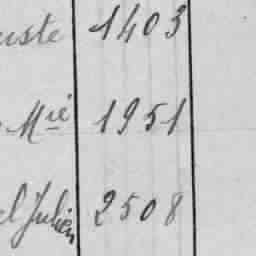 uste 1403
Mié 1951
el Julien 2508